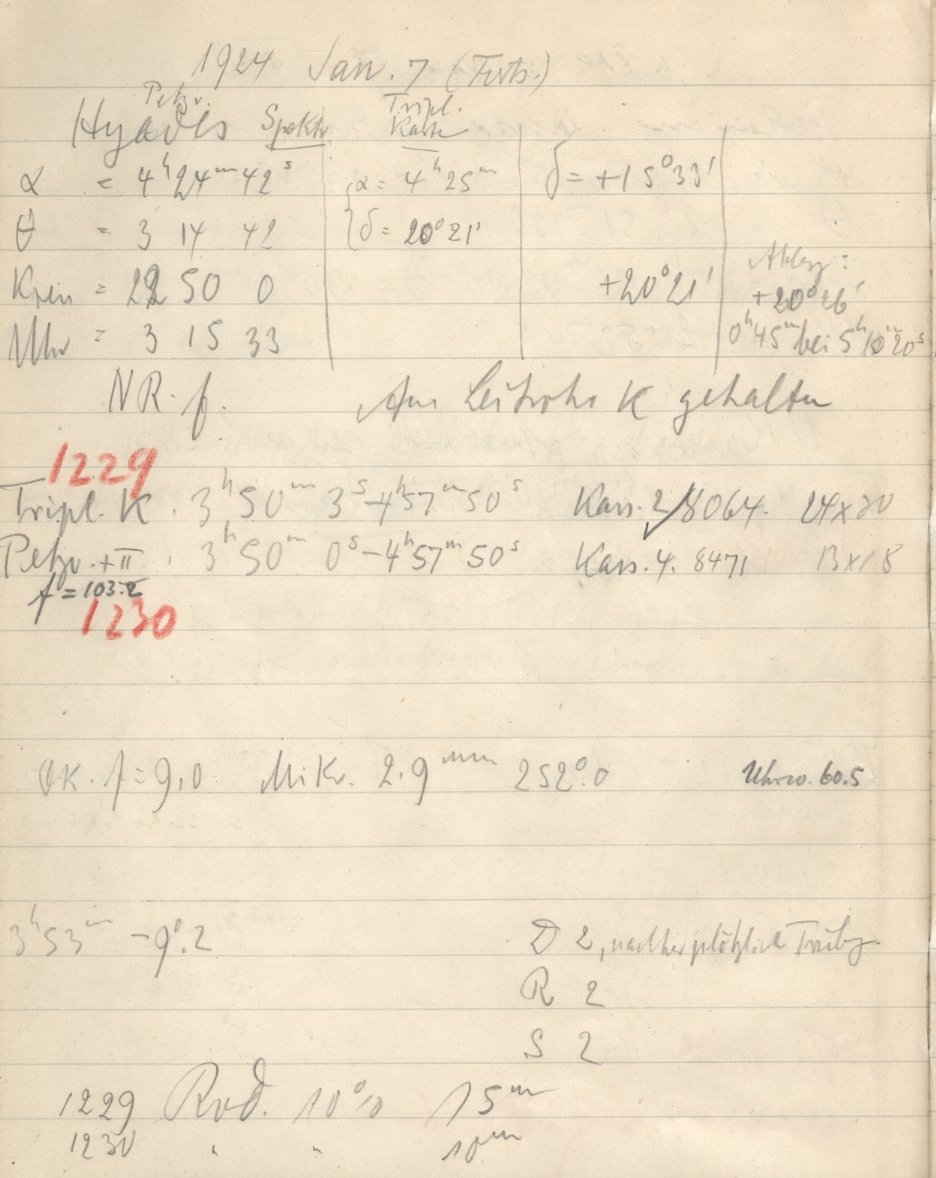 1924 Jan. 7 (Forts.)
Petzv. Tripl.
Hyades Spektr Karte
α = 4ʰ 24ᵐ 42ˢ α = 4ʰ 25ᵐ δ = +15°33'
θ = 3 14 42 δ = 20°21'
Ablesg:
Kreis = 22 50 0 +20°21' +20°26'
Uhr = 3 15 33 0ʰ45ᵐ bei 5ʰ10ᵐ20ˢ
NR. f. Am Leitrohr K gehalten
1229
Tripl. K. 3ʰ50ᵐ 3ˢ–4ʰ57ᵐ50ˢ Kass. 2 8064. 24x30
Petzv. + π . 3ʰ50ᵐ 0ˢ–4ʰ57ᵐ50ˢ Kass. 4. 8471 13x18
f = 103.2
1230
OK. f = 9,0 Mikr. 2.9ᵐᵐ 252°.0 Uhrw. 60.5
3ʰ53ᵐ –9°.2 D 2, nachher plötzlich Trübg.
R 2
S 2
1229 Rod. 10% 15ᵐ
1230 " " 10ᵐ